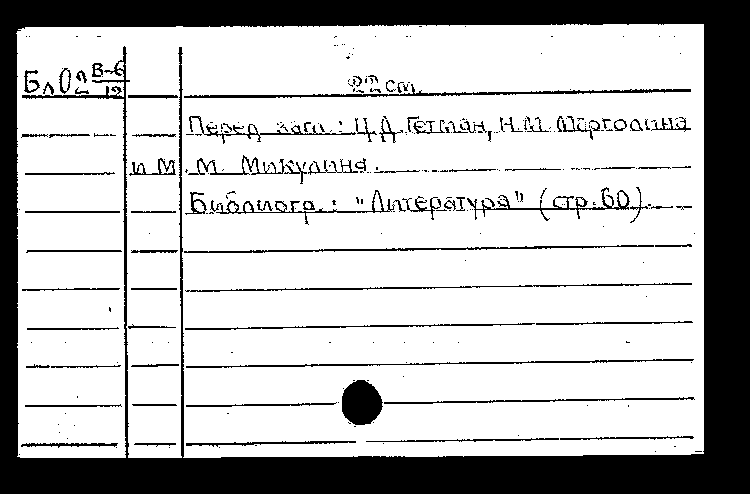 БлО2 В-6/12
22 см.
Перед загл.: Ц.Д. Гетман, Н.М. Марголина
и М.М. Микулина.
Библиогр.: "Литература" (стр. 60).